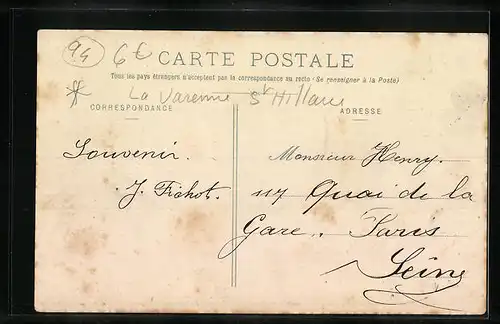 94 6€ CARTE POSTALE
Tous les pays étrangers n'acceptent pas la correspondance au recto (Se renseigner à la Poste)
La Varenne St Hillaire
CORRESPONDANCE
ADRESSE
Souvenir.
J. Fichot.
Monsieur Henry.
117 Quai de la
Gare. Paris
Seine